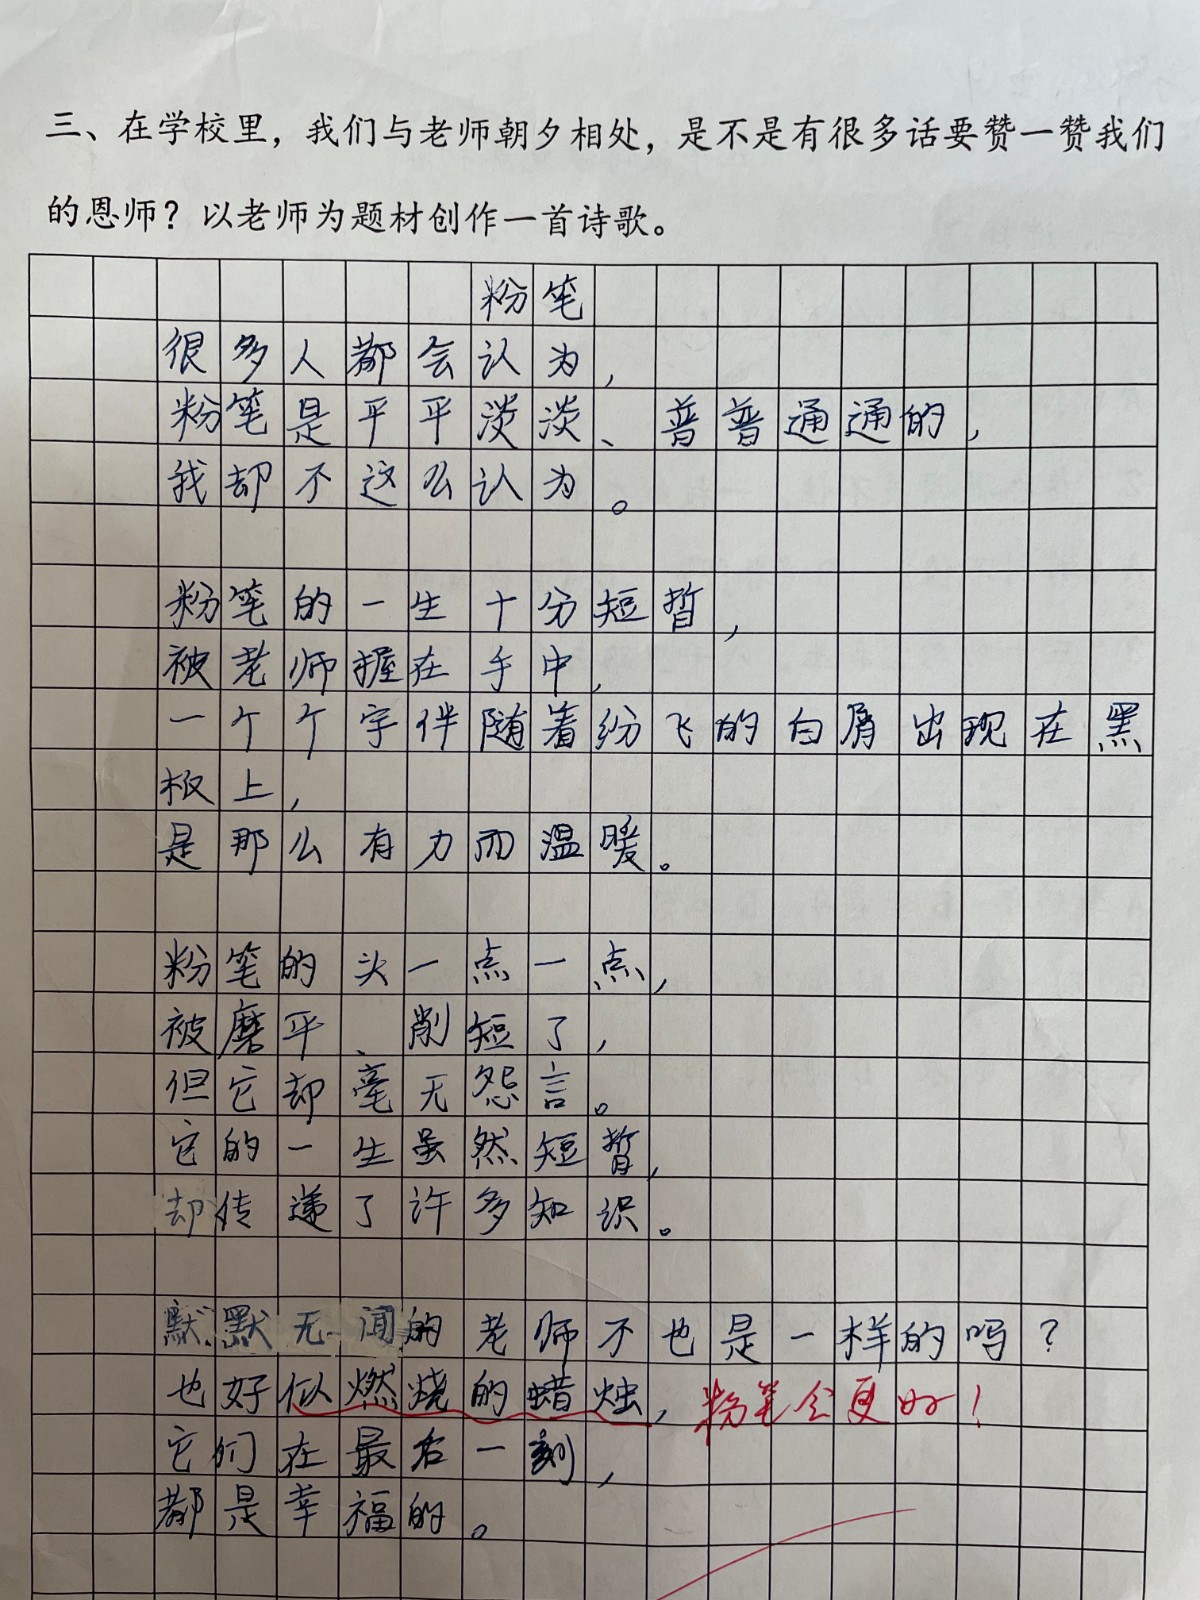 三、在学校里，我们与老师朝夕相处，是不是有很多话要赞一赞我们
的恩师？以老师为题材创作一首诗歌。
粉笔
很多人都会认为，
粉笔是平平淡淡、普普通通的，
我却不这么认为。
粉笔的一生十分短暂，
被老师握在手中，
一个个字伴随着纷飞的白屑出现在黑
板上，
是那么有力而温暖。
粉笔的头一点一点，
被磨平、削短了，
但它却毫无怨言。
它的一生虽然短暂，
却传递了许多知识。
默默无闻的老师不也是一样的吗？
也好似燃烧的蜡烛，粉笔会更好！
它们在最后一刻，
都是幸福的。